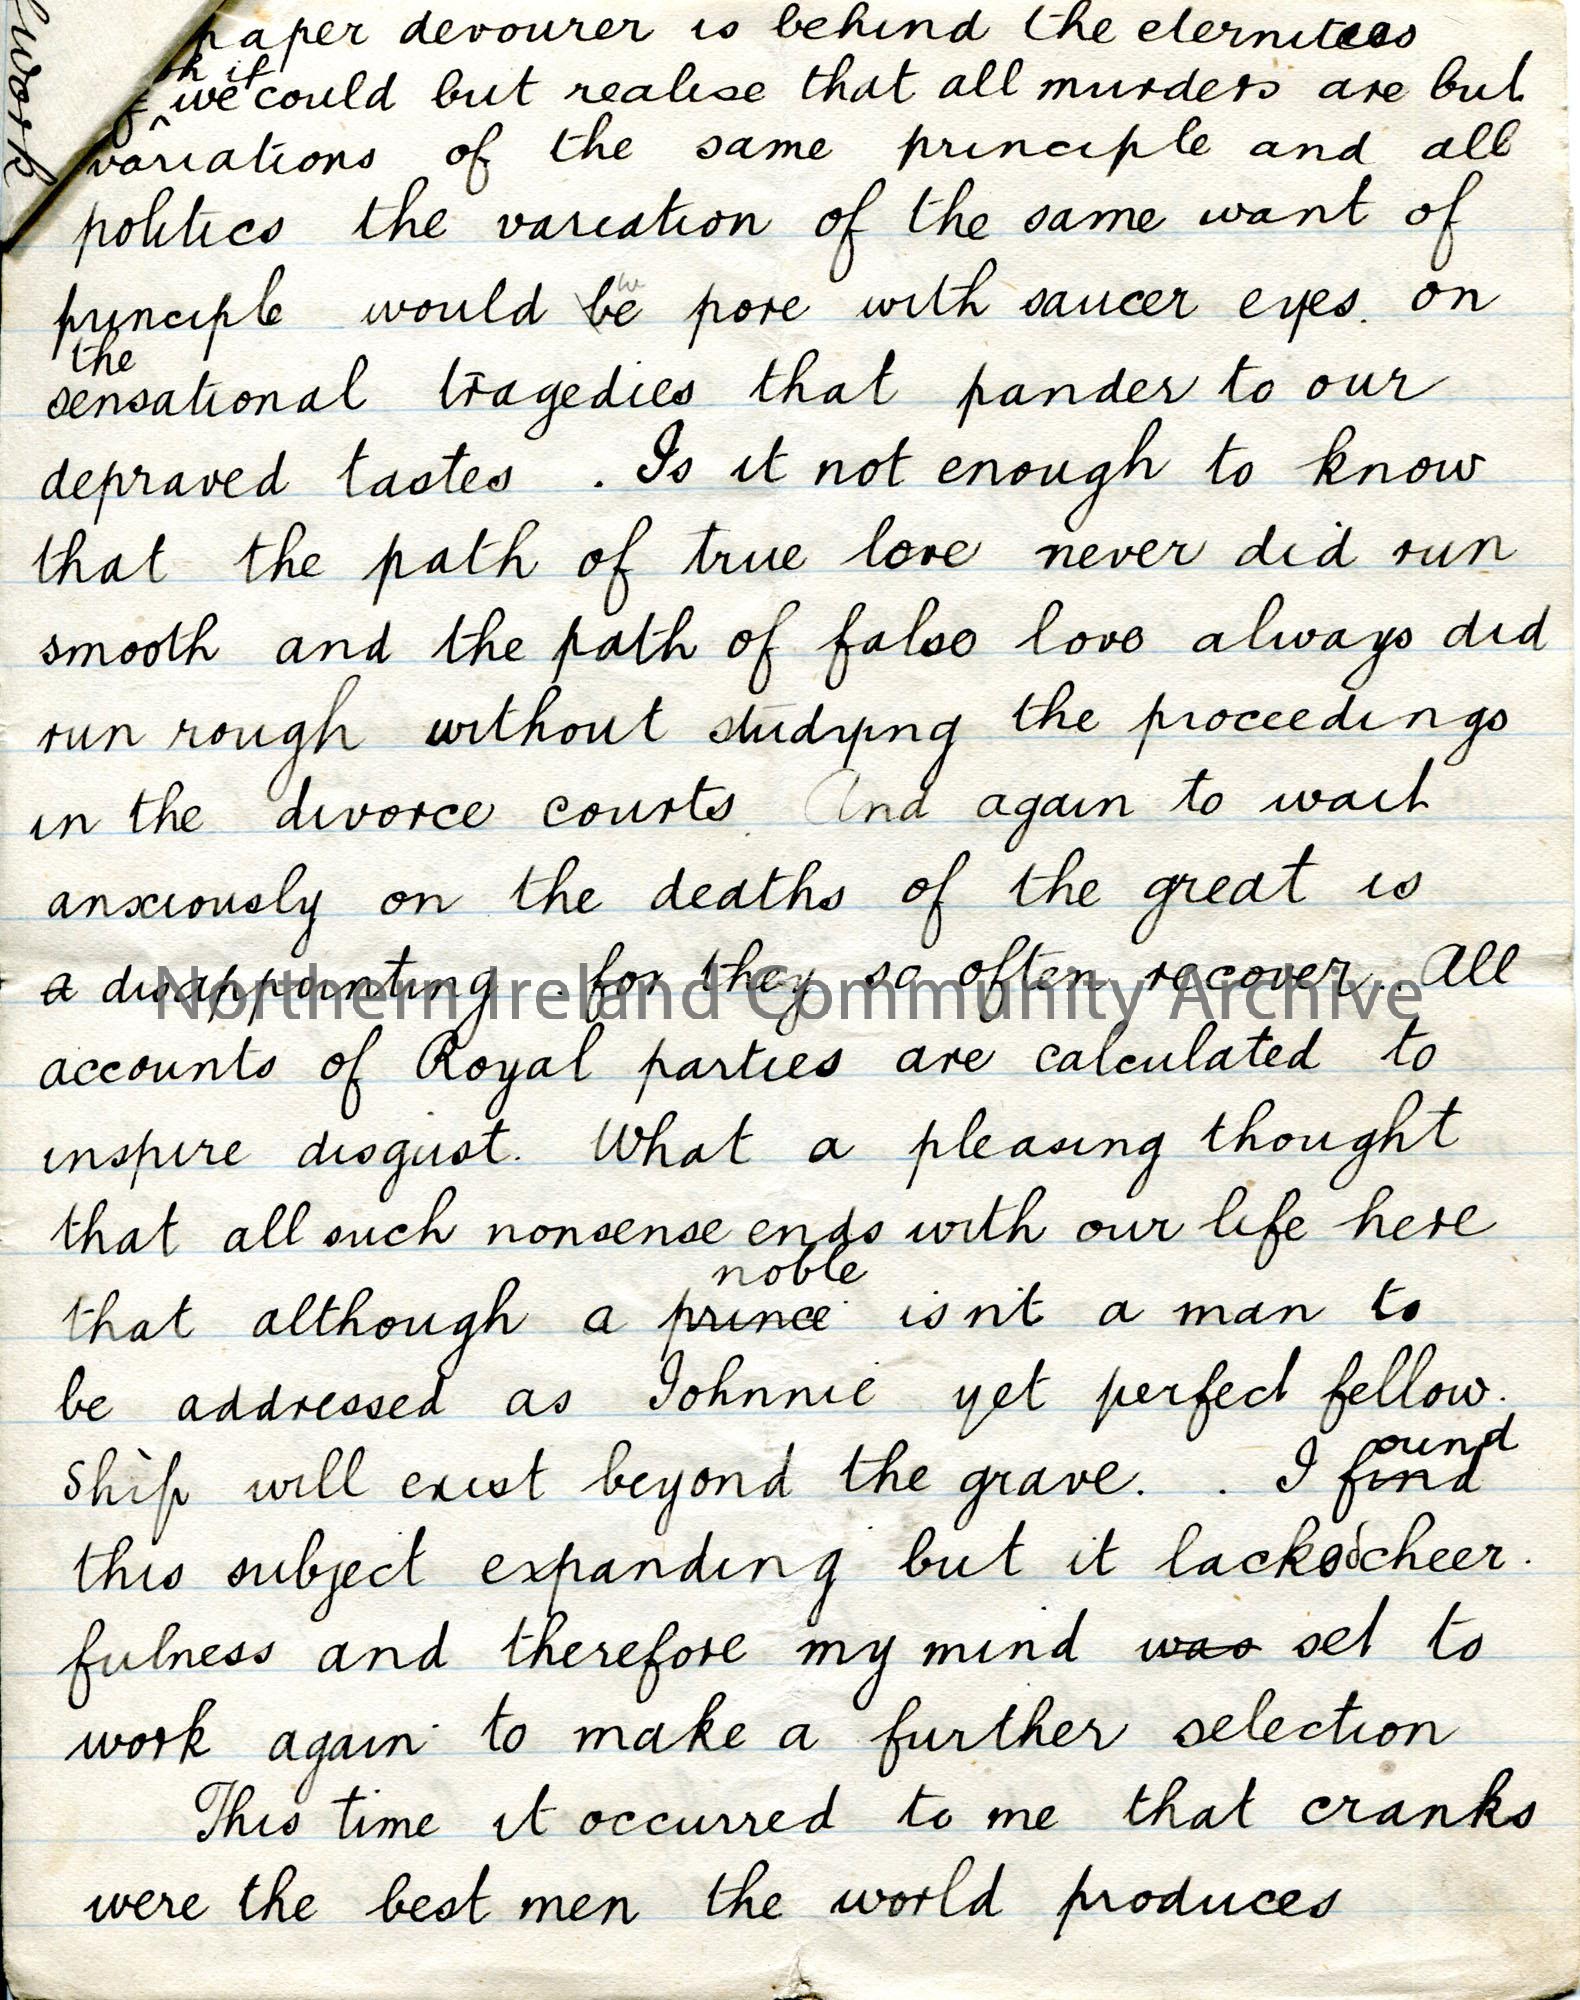 work
paper devourer is behind the eternitees
oh if
we could but realise that all murders are but
variations of the same principle and all
politics the variation of the same want of
principle would be w pore with saucer eyes. on
the
sensational tragedies that pander to our
depraved tastes . Is it not enough to know
that the path of true love never did run
smooth and the path of false love always did
run rough without studying the proceedings
in the divorce courts. And again to wait
anxiously on the deaths of the great is
a disappointing for they so often recover. All
Northern Ireland Community Archive
accounts of Royal parties are calculated to
inspire disgust. What a pleasing thought
that all such nonsense ends with our life here
noble
that although a prince isn't a man to
be addressed as Johnnie yet perfect fellow.
ound
ship will exist beyond the grave. . I find
this subject expanding but it lacked cheer.
fulness and therefore my mind was set to
work again to make a further selection
This time it occurred to me that cranks
were the best men the world produces